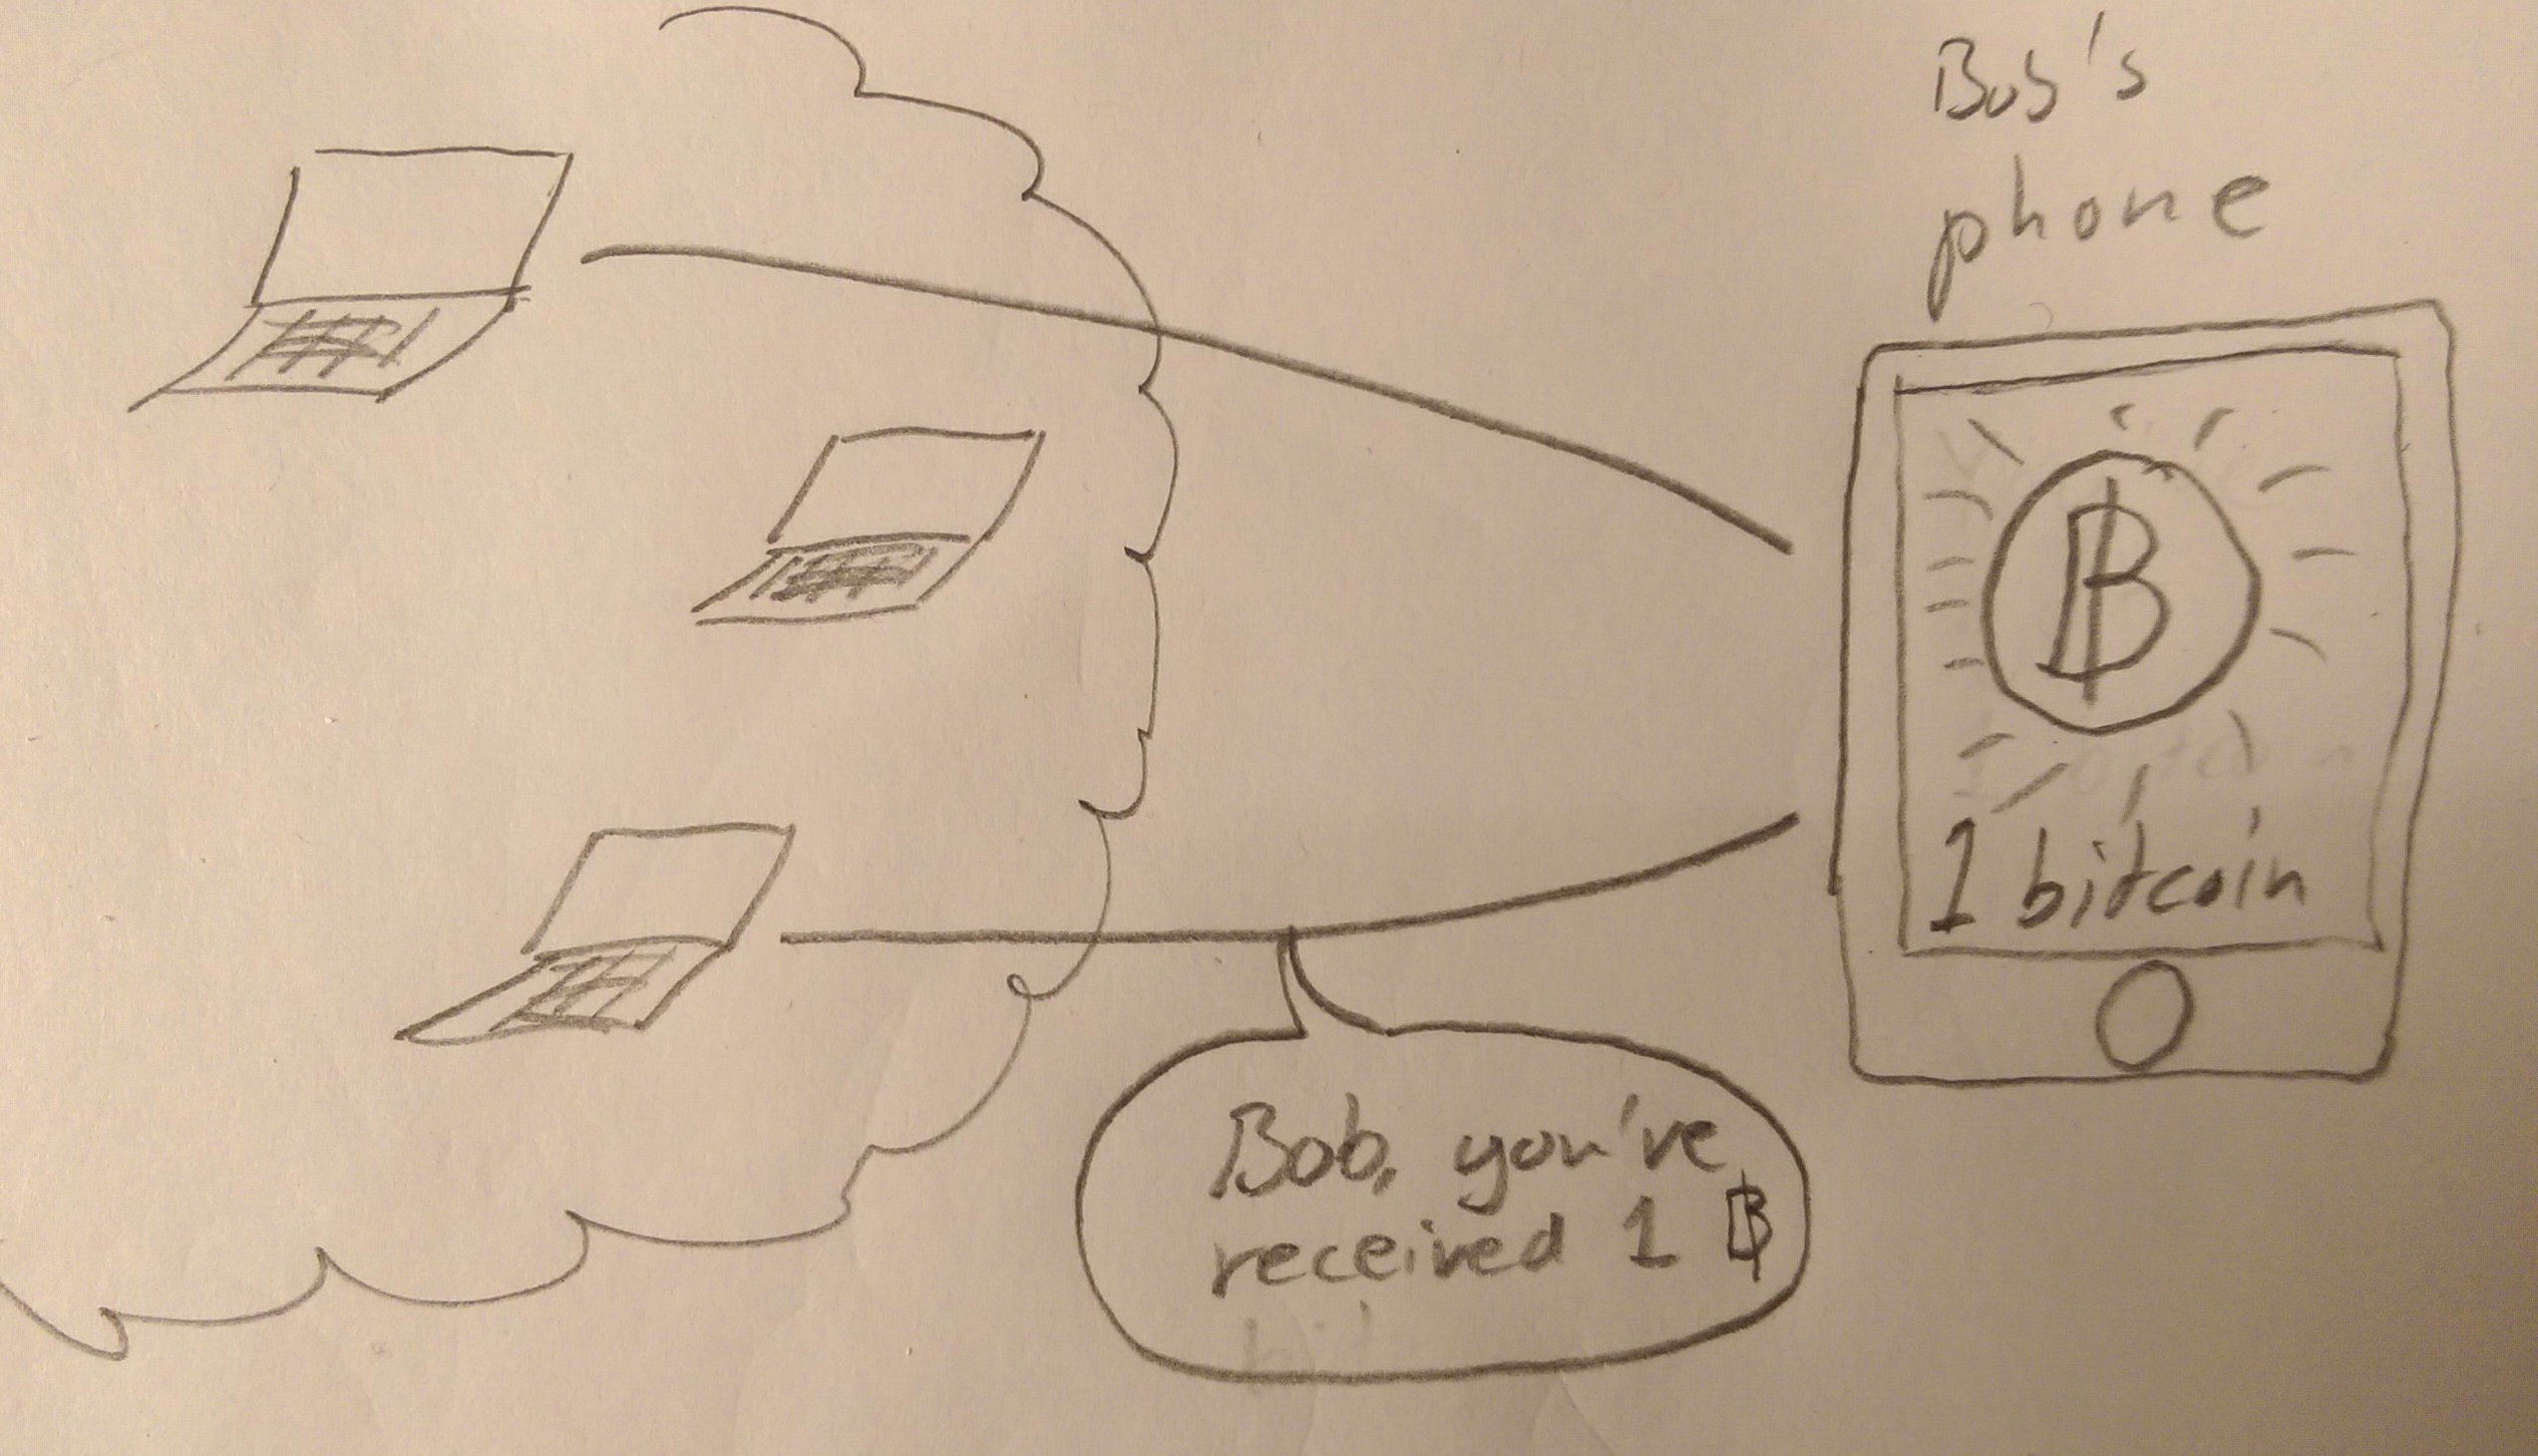 Bob's
phone
฿
1 bitcoin
Bob, you've
received 1 ฿